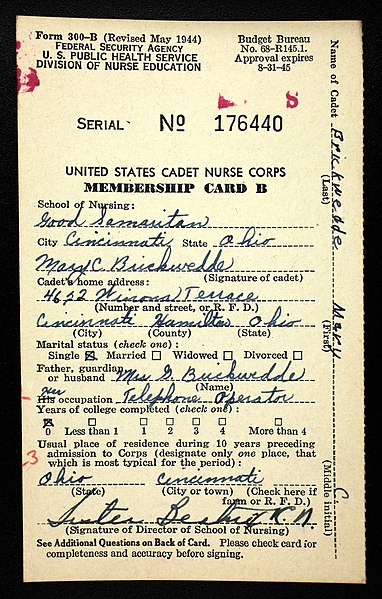 Form 300–B (Revised May 1944)
FEDERAL SECURITY AGENCY
U. S. PUBLIC HEALTH SERVICE
DIVISION OF NURSE EDUCATION
Budget Bureau
No. 68–R145.1.
Approval expires
8–31–45
S
SERIAL No 176440
UNITED STATES CADET NURSE CORPS
MEMBERSHIP CARD B
School of Nursing:
Good Samaritan
City Cincinnati State Ohio
Mary C. Brickwedde
(Signature of cadet)
Cadet's home address:
4622 Winona Terrace
(Number and street, or R. F. D.)
Cincinnati Hamilton Ohio
(City) (County) (State)
Marital status (check one):
Single Married Widowed Divorced
Father, guardian,
or husband Mrs G. Brickwedde
(Name)
Her
His occupation Telephone Operator
Years of college completed (check one):
0 Less than 1 1 2 3 4 More than 4
Usual place of residence during 10 years preceding
admission to Corps (designate only one place, that
which is most typical for the period):
3
Ohio Cincinnati
(State) (City or town) (Check here if
farm or R. F. D.)
Sister R.N.
(Signature of Director of School of Nursing)
See Additional Questions on Back of Card. Please check card for
completeness and accuracy before signing.
Name of Cadet Brickwedde Mary C.
(Last) (First) (Middle initial)